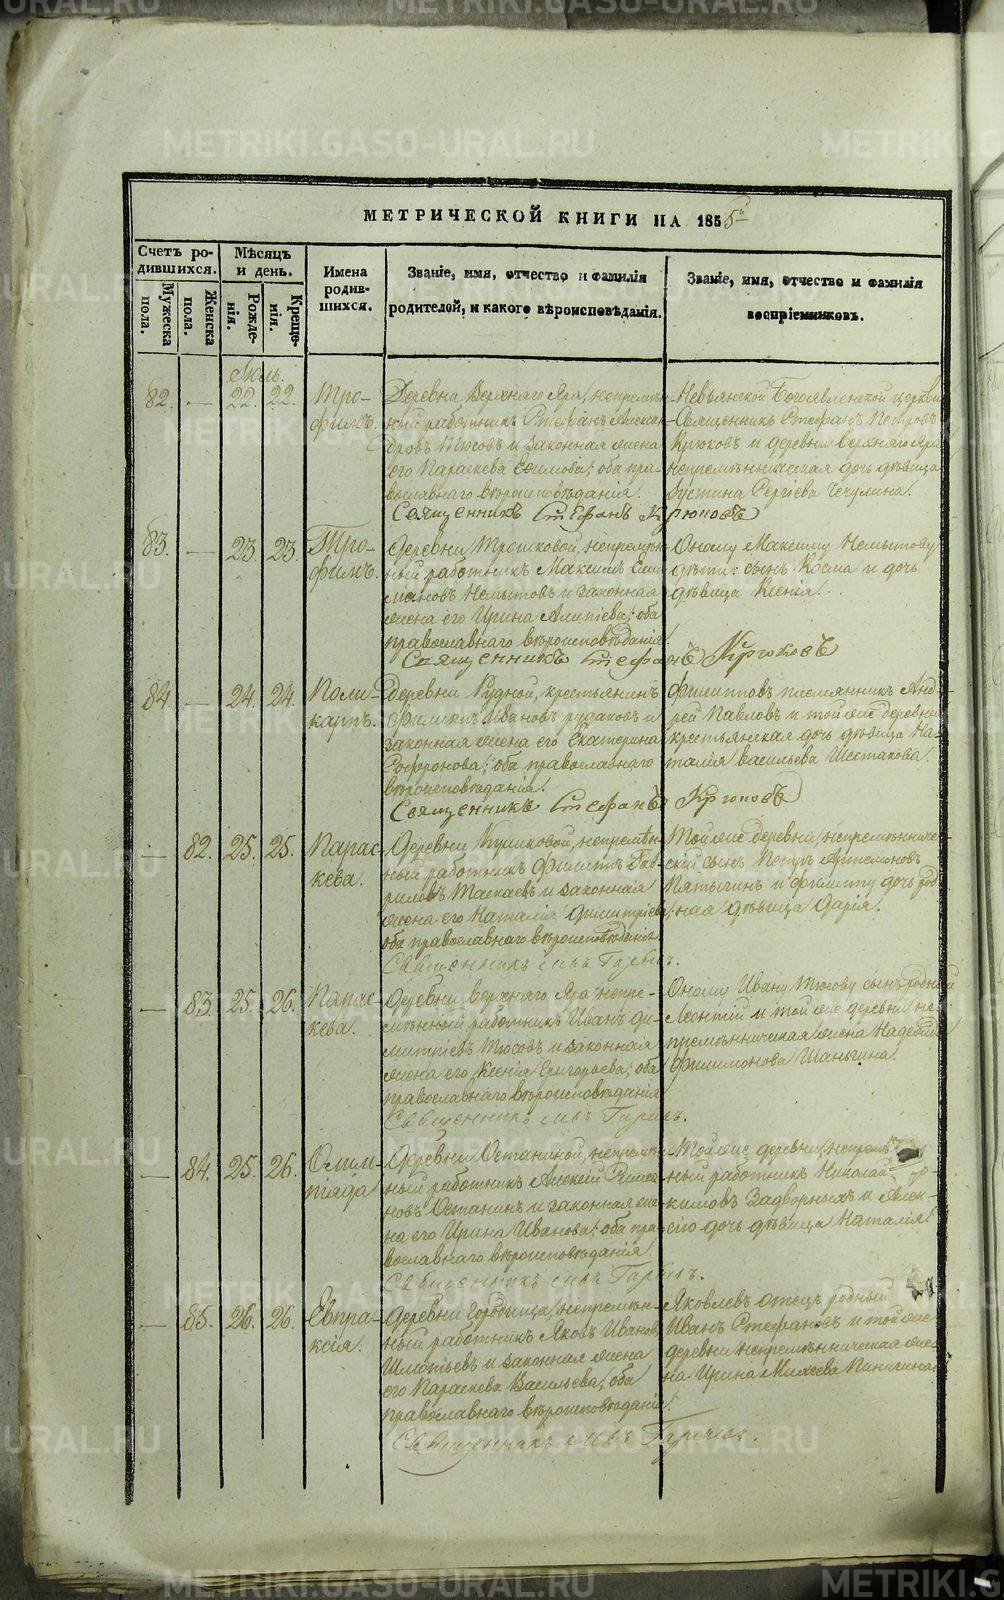 METRIKI.GASO-URAL.RU
МЕТРИЧЕСКОЙ КНИГИ НА 1855
Счетъ ро-
дившихся.
Мужеска
пола.
Женска
пола.
Мѣсяцъ
и день.
Рожде-
нія.
Креще-
нія.
Имена
родив-
шихся.
Званіе, имя, отчество и фамилія
родителей, и какого вѣроисповѣданія.
Званіе, имя, отчество и фамилія
воспріемниковъ.
Іюль.
82. — 22. 22.
Тро-
фимъ.
Деревни Верхняго Яра, непремѣн-
ный работникъ Стефанъ Алексан-
дровъ Тюсовъ и законная жена
его Параскева Ефимова; оба пра-
вославнаго вѣроисповѣданія.
Невьянской Богоявленской церкви
Священникъ Стефанъ Петровъ
Крюковъ и деревни Верхняго Яра
непремѣнническая дочь дѣвица
Іустина Сергіева Чечулина.
Священникъ Стефанъ Крюковъ
83. — 23. 23.
Тро-
фимъ.
Деревни Трошковой, непремѣн-
ный работникъ Максимъ
Немытовъ и законная
жена его Ирина Алипіева; оба
православнаго вѣроисповѣданія.
Оному Максиму Немытову
дѣти: сынъ Косма и дочь
дѣвица Ксенія.
Священникъ Стефанъ Крюковъ
84. — 24. 24.
Поли-
карпъ.
Деревни Рудной, крестьянинъ
Филиппъ Ивановъ Рудаковъ и
законная жена его Екатерина
Софронова; оба православнаго
вѣроисповѣданія.
Филипповъ племянникъ Анд-
рей Павловъ и той же деревни
крестьянская дочь дѣвица На-
талія Васильева Шестакова.
Священникъ Стефанъ Крюковъ
— 82. 25. 25.
Парас-
кева.
Деревни непремѣн-
ный работникъ Филиппъ Гав-
риловъ Таскаевъ и законная
жена его Наталія Димитріева;
оба православнаго вѣроисповѣданія.
Той же деревни, непремѣнниче-
скій сынъ Петръ Артемоновъ
Пятыгинъ и Филиппу дочь род-
ная дѣвица Дарія.
Священникъ
— 83. 25. 26.
Парас-
кева.
Деревни Верхняго Яра, непре-
мѣнный работникъ Иванъ Ди-
митріевъ Тюсовъ и законная
жена его Ксенія Григорьева; оба
православнаго вѣроисповѣданія
Оному Ивану Тюсову сынъ родной
Леонтій и той же деревни не-
премѣнническая жена Надежда
Филимонова Шаньгина.
Священникъ
— 84. 25. 26.
Олим-
піада
Деревни Останиной, непремѣн-
ный работникъ Алексій
Останинъ и законная же-
на его Ирина Иванова; оба пра-
вославнаго вѣроисповѣданія.
Той же деревни, непремѣн-
ный работникъ Николай
Задворныхъ и Алек-
сію дочь дѣвица Наталія.
Священникъ
— 85. 26. 26.
Евпра-
ксія.
Деревни Городища, непремѣн-
ный работникъ Яковъ Ивановъ
и законная жена
его Параскева Васильева; оба
православнаго вѣроисповѣданія.
Яковлевъ отецъ родный
Иванъ Стефановъ и той же
деревни непремѣнническая же-
на Ирина Михеева
Священникъ